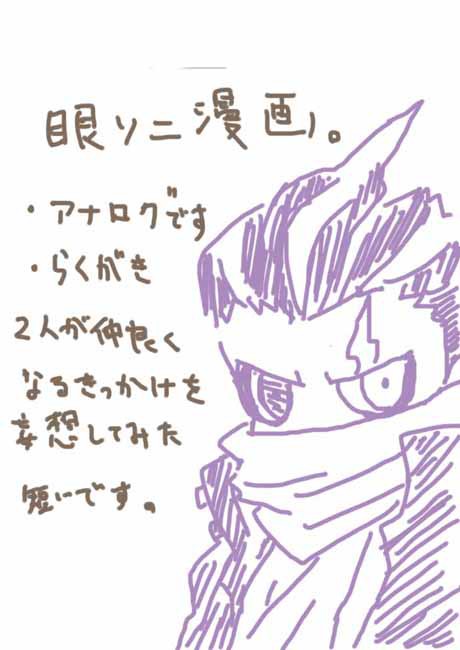 眼ソニ漫画。
・アナログです
・らくがき
2人が仲良く
なるきっかけを
妄想してみた
短いです。